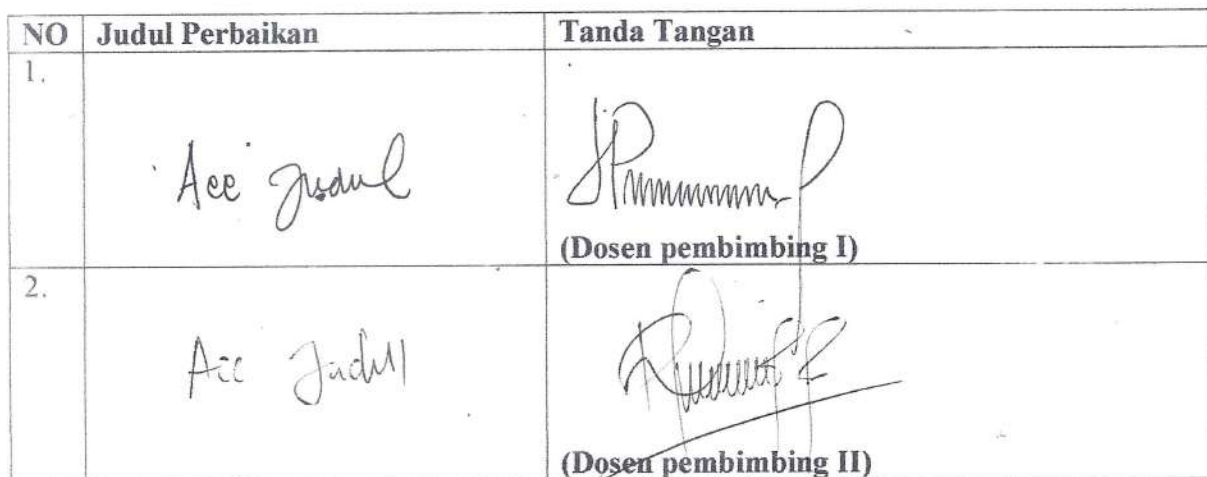 NO Judul Perbaikan Tanda Tangan
1.
Acc Judul
(Dosen pembimbing I)
2.
Acc Judul
(Dosen pembimbing II)